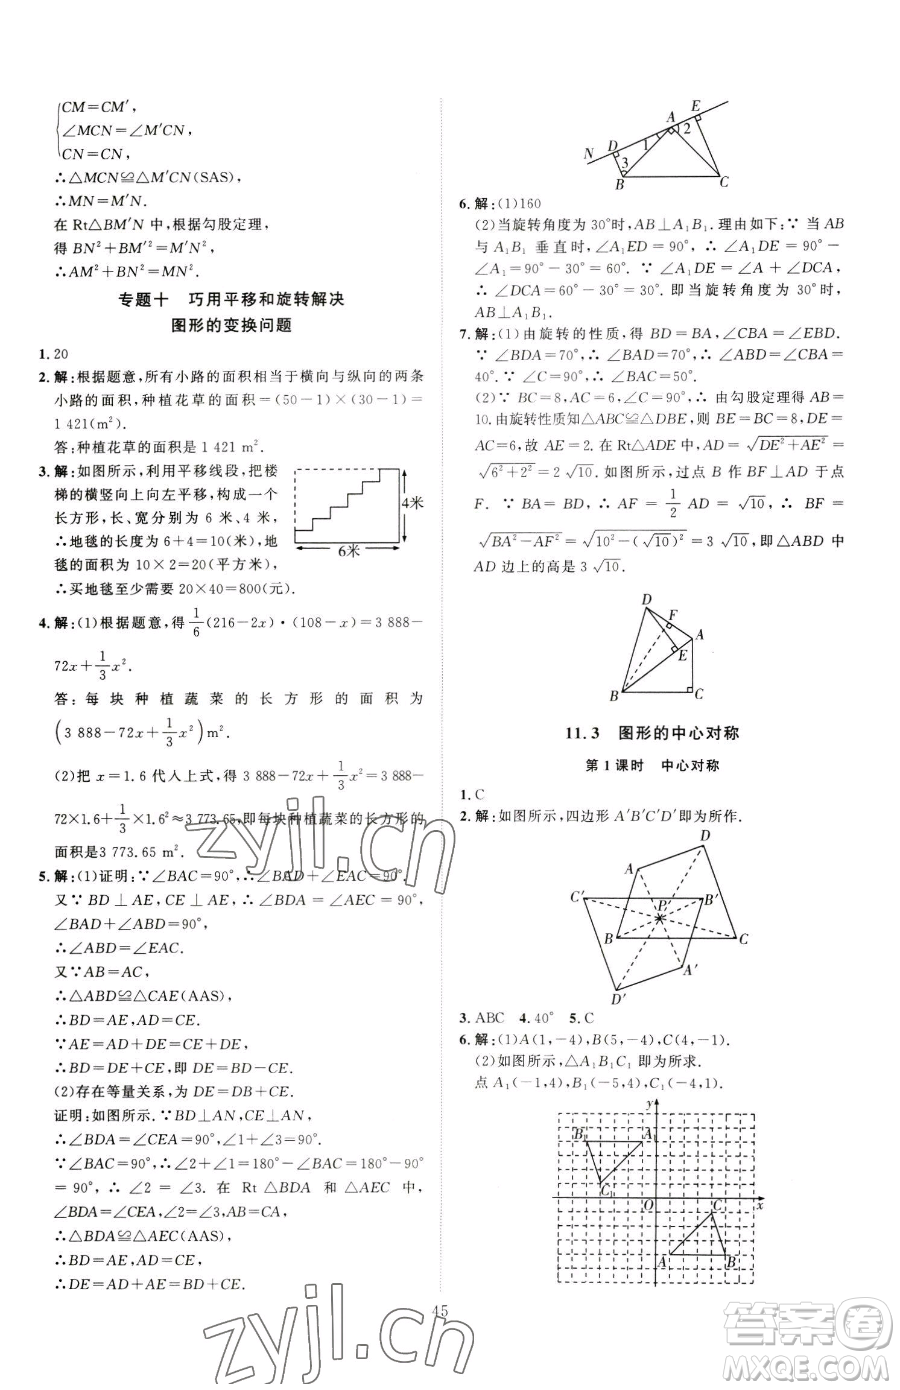 CM=CM′,
∠MCN=∠M′CN,
CN=CN,
∴△MCN≌△M′CN(SAS),
∴MN=M′N.
在 Rt△BM′N 中,根据勾股定理,
得 BN²+BM′²=M′N²,
∴AM²+BN²=MN².
专题十 巧用平移和旋转解决
图形的变换问题
1.20
2.解:根据题意,所有小路的面积相当于横向与纵向的两条
小路的面积,种植花草的面积=(50-1)×(30-1)=
1 421(m²).
答:种植花草的面积是 1 421 m².
3.解:如图所示,利用平移线段,把楼
梯的横竖向上向左平移,构成一个
长方形,长、宽分别为 6 米、4 米,
∴地毯的长度为 6+4=10(米),地
毯的面积为 10×2=20(平方米),
∴买地毯至少需要 20×40=800(元).
4米
6米
4.解:(1)根据题意,得 1/6 (216-2x)·(108-x)=3 888-
72x+1/3 x².
答:每块种植蔬菜的长方形的面积为
(3 888-72x+1/3 x²)m².
(2)把 x=1.6 代人上式,得 3 888-72x+1/3 x²=3 888-
72×1.6+1/3×1.6²≈3 773.65,即每块种植蔬菜的长方形的
面积是3 773.65 m².
5.解:(1)证明:∵∠BAC=90°,∴∠BAD+∠EAC=90°.
又∵BD⊥AE,CE⊥AE,∴∠BDA=∠AEC=90°,
∠BAD+∠ABD=90°,
∴∠ABD=∠EAC.
又∵AB=AC,
∴△ABD≌△CAE(AAS),
∴BD=AE,AD=CE.
∵AE=AD+DE=CE+DE,
∴BD=DE+CE,即 DE=BD-CE.
(2)存在等量关系,为 DE=DB+CE.
证明:如图所示.∵BD⊥AN,CE⊥AN,
∴∠BDA=∠CEA=90°,∠1+∠3=90°.
∵∠BAC=90°,∴∠1+∠2=180°-∠BAC=180°-
90°=90°,∴∠2=∠3.在 Rt△BDA 和△AEC 中,
∠BDA=∠CEA=90°,∠3=∠2,AB=CA,
∴△BDA≌△AEC(AAS),
∴BD=AE,DA=EC,
∴DE=AD+AE=BD+CE.
E
A
2
1
D
N
3
B
C
6.解:(1)160
(2)当旋转角度为30°时,AB⊥A₁B₁.理由如下:∵当AB
与 A₁B₁ 垂直时,∠A₁ED=90°,∴∠A₁DE=90°-
∠A₁=90°-30°=60°.∵∠A₁DE=∠A+∠DCA,
∴∠DCA=60°-30°=30°.即当旋转角度为30°时,
AB⊥A₁B₁.
7.解:(1)由旋转的性质,得 BD=BA,∠CBA=∠EBD.
∵∠BDA=70°,∴∠BAD=70°,∴∠CBA=∠DBA=
40°.∵∠C=90°,∴∠BAC=50°.
(2)∵BC=8,AC=6,∠C=90°,由勾股定理得AB=
10.由旋转性质知△ABC≌△DBE,则 BE=BC=8,DE=
AC=6,故 AE=2.在 Rt△ADE 中,AD=√(DE²+AE²)=
√(6²+2²)=2√10.如图所示,过点 B 作 BF⊥AD 于点
F.∵BA=BD,∴AF=1/2 AD=√10,∴BF=
√(BA²-AF²)=√(10²-(√10)²)=3√10,即△ABD 中
AD 边上的高是 3√10.
D
F
A
E
B
C
11.3 图形的中心对称
第1课时 中心对称
1.C
2.解:如图所示,四边形 A′B′C′D′即为所作.
D
A
C′
B′
P′
B
C
A′
D′
3.ABC 4.40° 5.C
6.解:(1)A(1,-4),B(5,-4),C(4,-1).
(2)如图所示,△A₁B₁C₁ 即为所求.
点 A₁(-1,4),B₁(-5,4),C₁(-4,1).
y
B₁
A₁
C₁
O
x
C
A
B
45
zyjl.cn
zyjl.cn
答案圈
MXQE.COM